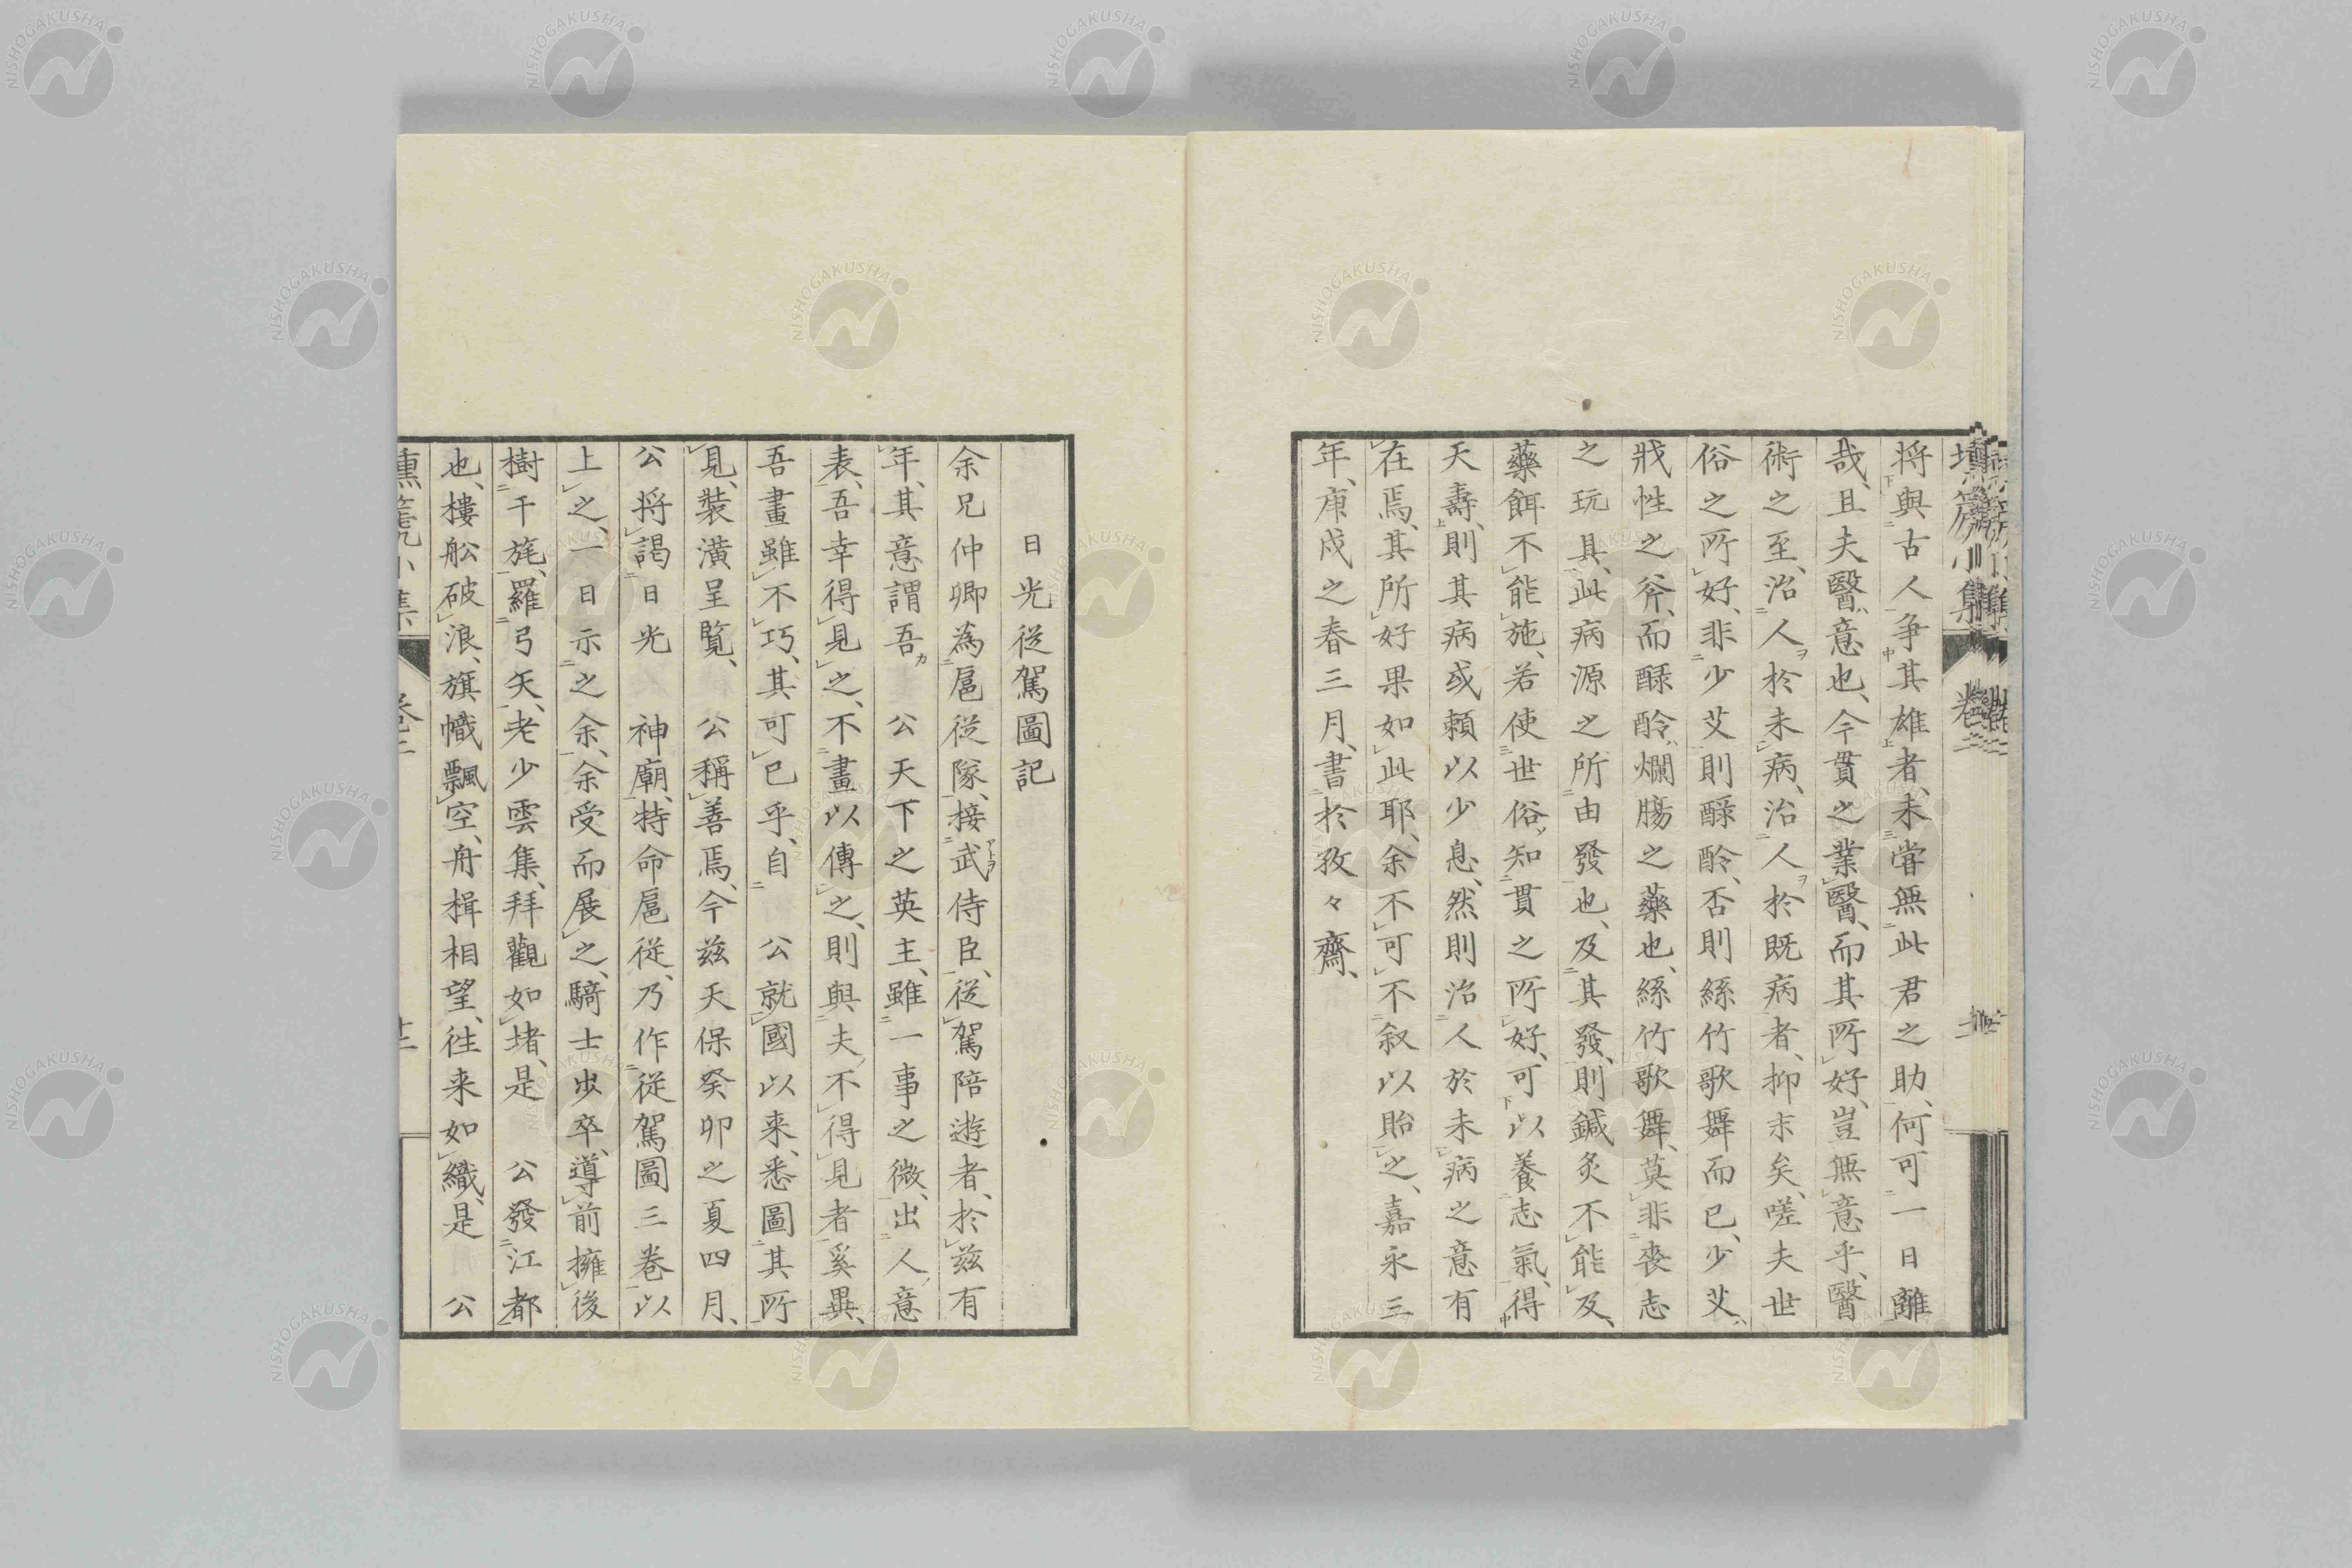 將與古人争其雄者、未嘗無此君之助、何可一日離
哉、且夫醫意也、今貫之業醫、而其所好、豈無意乎、醫
術之至、治人於未病、治人於既病者、抑末矣、嗟夫世
俗之所好、非少艾則醁醽、否則絲竹歌舞而已、少艾
戕性之斧、而醁醽爛腸之藥也、絲竹歌舞、莫非喪志
之玩具、此病源之所由發也、及其發、則鍼灸不能及、
藥餌不能施、若使世俗知貫之所好、可以養志氣、得
天壽、則其病或頼以少息、然則治人於未病之意有
在焉、其所好果如此耶、余不可不叙以貽之、嘉永三
年、庚戌之春三月、書於孜々齋、
日光従駕圖記
余兄仲卿為扈従隊、接武侍臣、従駕陪遊者、於茲有
年、其意謂吾 公天下之英主、雖一事之微、出人意
表、吾幸得見之、不畫以傳之、則與夫不得見者奚異、
吾畫雖不巧、其可已乎、自 公就國以来、悉圖其所
見、裝潢呈覧、 公稱善焉、今茲天保癸卯之夏四月、
公将謁日光 神廟、特命扈従、乃作従駕圖三巻以
上之、一日示之余、余受而展之、騎士歩卒、導前擁後
樹干旄、羅弓矢、老少雲集、拜觀如堵、是 公發江都
也、樓舩破浪、旗幟飄空、舟楫相望、徃来如織、是 公